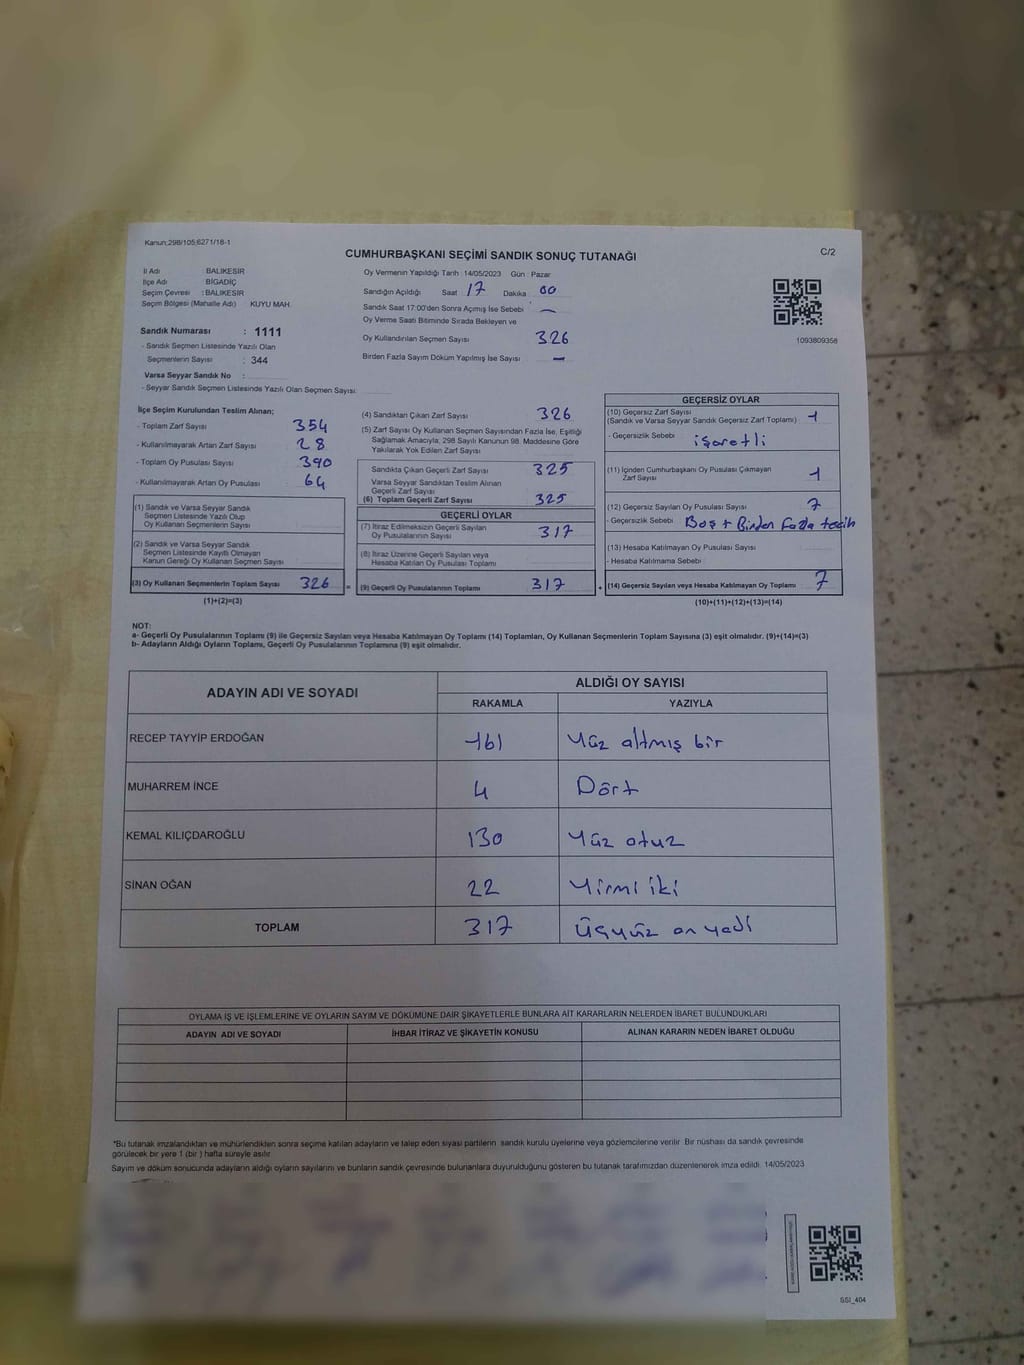 Kanun:298/105;6271/18-1
C/2
CUMHURBAŞKANI SEÇİMİ SANDIK SONUÇ TUTANAĞI
İl Adı BALIKESİR
İlçe Adı BİGADİÇ
Seçim Çevresi :BALIKESİR
Seçim Bölgesi (Mahalle Adı) KUYU MAH.
Sandık Numarası : 1111
- Sandık Seçmen Listesinde Yazılı Olan
Seçmenlerin Sayısı : 344
Varsa Seyyar Sandık No :
- Seyyar Sandık Seçmen Listesinde Yazılı Olan Seçmen Sayısı:
Oy Vermenin Yapıldığı Tarih :14/05/2023 Gün : Pazar
Sandığın Açıldığı Saat 17 Dakika 00
Sandık Saat 17:00'den Sonra Açmış İse Sebebi : —
Oy Verme Saati Bitiminde Sırada Bekleyen ve
Oy Kullandırılan Seçmen Sayısı 326
Birden Fazla Sayım Döküm Yapılmış İse Sayısı —
1093809358
İlçe Seçim Kurulundan Teslim Alınan;
- Toplam Zarf Sayısı 354
- Kullanılmayarak Artan Zarf Sayısı 28
- Toplam Oy Pusulası Sayısı 390
- Kullanılmayarak Artan Oy Pusulası 64
(1) Sandık ve Varsa Seyyar Sandık
Seçmen Listesinde Yazılı Olup
Oy Kullanan Seçmenlerin Sayısı
(2) Sandık ve Varsa Seyyar Sandık
Seçmen Listesinde Kayıtlı Olmayan
Kanun Gereği Oy Kullanan Seçmen Sayısı
(3) Oy Kullanan Seçmenlerin Toplam Sayısı 326 =
(1)+(2)=(3)
(4) Sandıktan Çıkan Zarf Sayısı 326
(5) Zarf Sayısı Oy Kullanan Seçmen Sayısından Fazla İse, Eşitliği
Sağlamak Amacıyla; 298 Sayılı Kanunun 98. Maddesine Göre
Yakılarak Yok Edilen Zarf Sayısı
Sandıkta Çıkan Geçerli Zarf Sayısı 325
Varsa Seyyar Sandıktan Teslim Alınan
Geçerli Zarf Sayısı
(6) Toplam Geçerli Zarf Sayısı 325
GEÇERLİ OYLAR
(7) İtiraz Edilmeksizin Geçerli Sayılan
Oy Pusulalarının Sayısı 317
(8) İtiraz Üzerine Geçerli Sayılan veya
Hesaba Katılan Oy Pusulası Toplamı
(9) Geçerli Oy Pusulalarının Toplamı 317 +
GEÇERSİZ OYLAR
(10) Geçersiz Zarf Sayısı
(Sandık ve Varsa Seyyar Sandık Geçersiz Zarf Toplamı) 1
- Geçersizlik Sebebi : işaretli
(11) İçinden Cumhurbaşkanı Oy Pusulası Çıkmayan
Zarf Sayısı 1
(12) Geçersiz Sayılan Oy Pusulası Sayısı 7
- Geçersizlik Sebebi Boş + Birden fazla tercih
(13) Hesaba Katılmayan Oy Pusulası Sayısı
- Hesaba Katılmama Sebebi
(14) Geçersiz Sayılan veya Hesaba Katılmayan Oy Toplamı 7
(10)+(11)+(12)+(13)=(14)
NOT:
a- Geçerli Oy Pusulalarının Toplamı (9) ile Geçersiz Sayılan veya Hesaba Katılmayan Oy Toplamı (14) Toplamları, Oy Kullanan Seçmenlerin Toplam Sayısına (3) eşit olmalıdır. (9)+(14)=(3)
b- Adayların Aldığı Oyların Toplamı, Geçerli Oy Pusulalarının Toplamına (9) eşit olmalıdır.
ADAYIN ADI VE SOYADI ALDIĞI OY SAYISI
RAKAMLA YAZIYLA
RECEP TAYYİP ERDOĞAN 161 Yüz altmış bir
MUHARREM İNCE 4 Dört
KEMAL KILIÇDAROĞLU 130 Yüz otuz
SİNAN OĞAN 22 Yirmi iki
TOPLAM 317 Üçyüz on yedi
OYLAMA İŞ VE İŞLEMLERİNE VE OYLARIN SAYIM VE DÖKÜMÜNE DAİR ŞİKAYETLERLE BUNLARA AİT KARARLARIN NELERDEN İBARET BULUNDUKLARI
ADAYIN ADI VE SOYADI İHBAR İTİRAZ VE ŞİKAYETİN KONUSU ALINAN KARARIN NEDEN İBARET OLDUĞU
*Bu tutanak imzalandıktan ve mühürlendikten sonra seçime katılan adayların ve talep eden siyasi partilerin sandık kurulu üyelerine veya gözlemcilerine verilir. Bir nüshası da sandık çevresinde
görülecek bir yere 1 (bir ) hafta süreyle asılır.
Sayım ve döküm sonucunda adayların aldığı oyların sayılarını ve bunların sandık çevresinde bulunanlara duyurulduğunu gösteren bu tutanak tarafımızdan düzenlenerek imza edildi. 14/05/2023
SSI_404